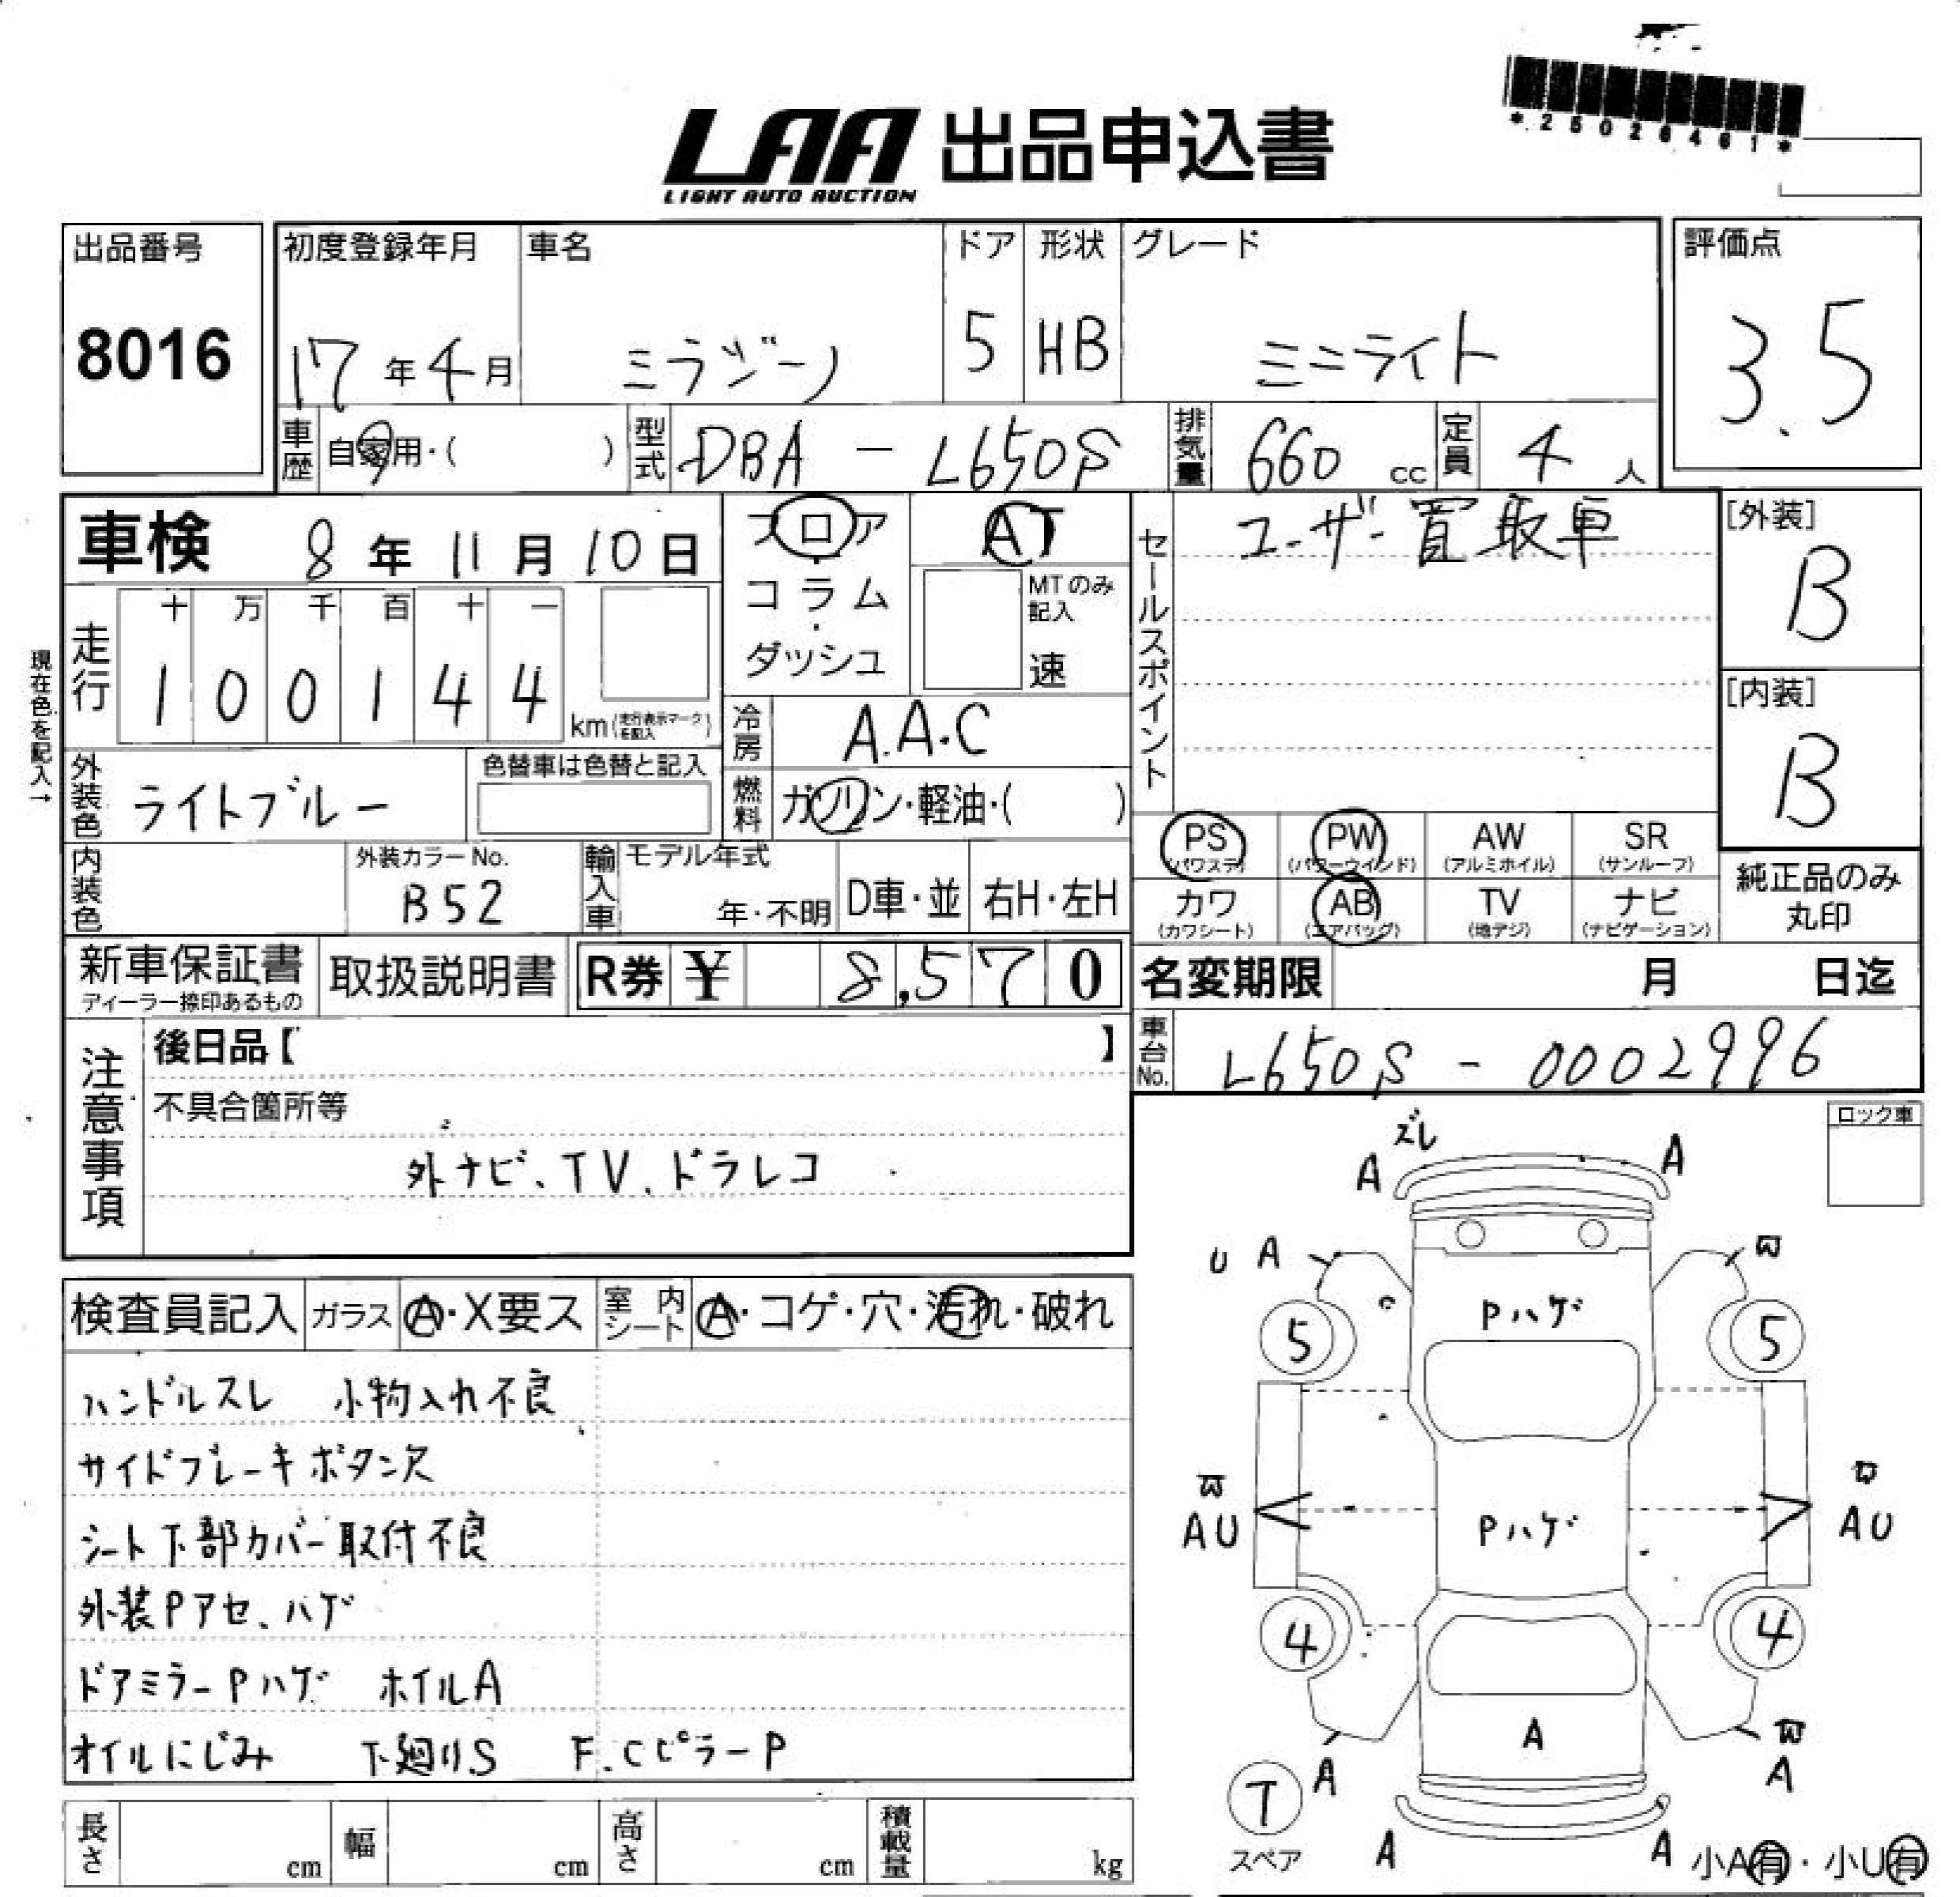 *25026461*
LAA 出品申込書
LIGHT AUTO AUCTION
出品番号
8016
初度登録年月
17年4月
車名
ミラジーノ
ドア
5
形状
HB
グレード
ミニライト
評価点
3.5
車歴 自家用・( )
型式 DBA - L650S
排気量 660 cc
定員 4人
車検 8年11月10日
フロア・コラム・ダッシュ
AT
MTのみ記入
速
セールスポイント
ユーザー買取車
[外装]
B
[内装]
B
現在色を記入→
走行
十 万 千 百 十 一
1 0 0 1 4 4
km (走行表示マークを記入)
冷房 A.A.C
外装色 ライトブルー
色替車は色替と記入
燃料 ガソリン・軽油・( )
内装色
外装カラーNo.
B52
輸入車 モデル年式
年・不明
D車・並
右H・左H
PS (パワステ)
PW (パワーウインド)
AW (アルミホイル)
SR (サンルーフ)
カワ (カワシート)
AB (エアバッグ)
TV (地デジ)
ナビ (ナビゲーション)
純正品のみ丸印
新車保証書
ディーラー捺印あるもの
取扱説明書
R券 ¥ 8,570
名変期限 月 日迄
車台No. L650S - 0002996
注意事項
後日品【 】
不具合箇所等
外ナビ、TV、ドラレコ
ロック車
検査員記入
ガラス A・X要ス
室内シート A・コゲ・穴・汚れ・破れ
ハンドルスレ 小物入れ不良
サイドブレーキボタン欠
シート下部カバー取付不良
外装Pアセ、ハゲ
ドアミラーPハゲ ホイルA
オイルにじみ 下廻りS F.CピラーP
ズレ
A A
U A
Pハゲ
5 5
AU
Pハゲ
AU
4 4
A
A
A
T
スペア
A A
小A有・小U有
長さ cm
幅 cm
高さ cm
積載量 kg